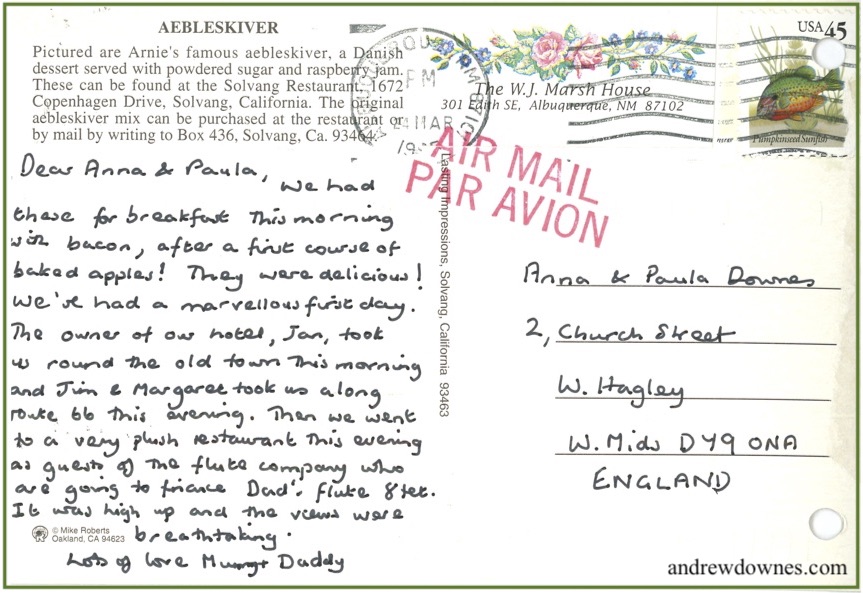 AEBLESKIVER
Pictured are Arnie's famous aebleskiver, a Danish
dessert served with powdered sugar and raspberry jam.
These can be found at the Solvang Restaurant, 1672
Copenhagen Drive, Solvang, California. The original
aebleskiver mix can be purchased at the restaurant or
by mail by writing to Box 436, Solvang, Ca. 93464.
Dear Anna & Paula,
we had
these for breakfast this morning
with bacon, after a first course of
baked apples! They were delicious!
We've had a marvellous first day.
The owner of our hotel, Jan, took
us round the old town this morning
and Jim & Margaret took us along
route 66 this evening. Then we went
to a very plush restaurant this evening
as guests of the flute company who
are going to finance Dad's flute 8tet.
It was high up and the views were
breathtaking.
Lots of love Mummy + Daddy
© Mike Roberts
Oakland, CA 94623
Lasting Impressions, Solvang, California 93463
PM
24 MAR
The W.J. Marsh House
301 Edith SE, Albuquerque, NM 87102
USA 45
Pumpkinseed Sunfish
AIR MAIL
PAR AVION
Anna & Paula Downes
2, Church Street
W. Hagley
W. Mids DY9 0NA
ENGLAND
andrewdownes.com